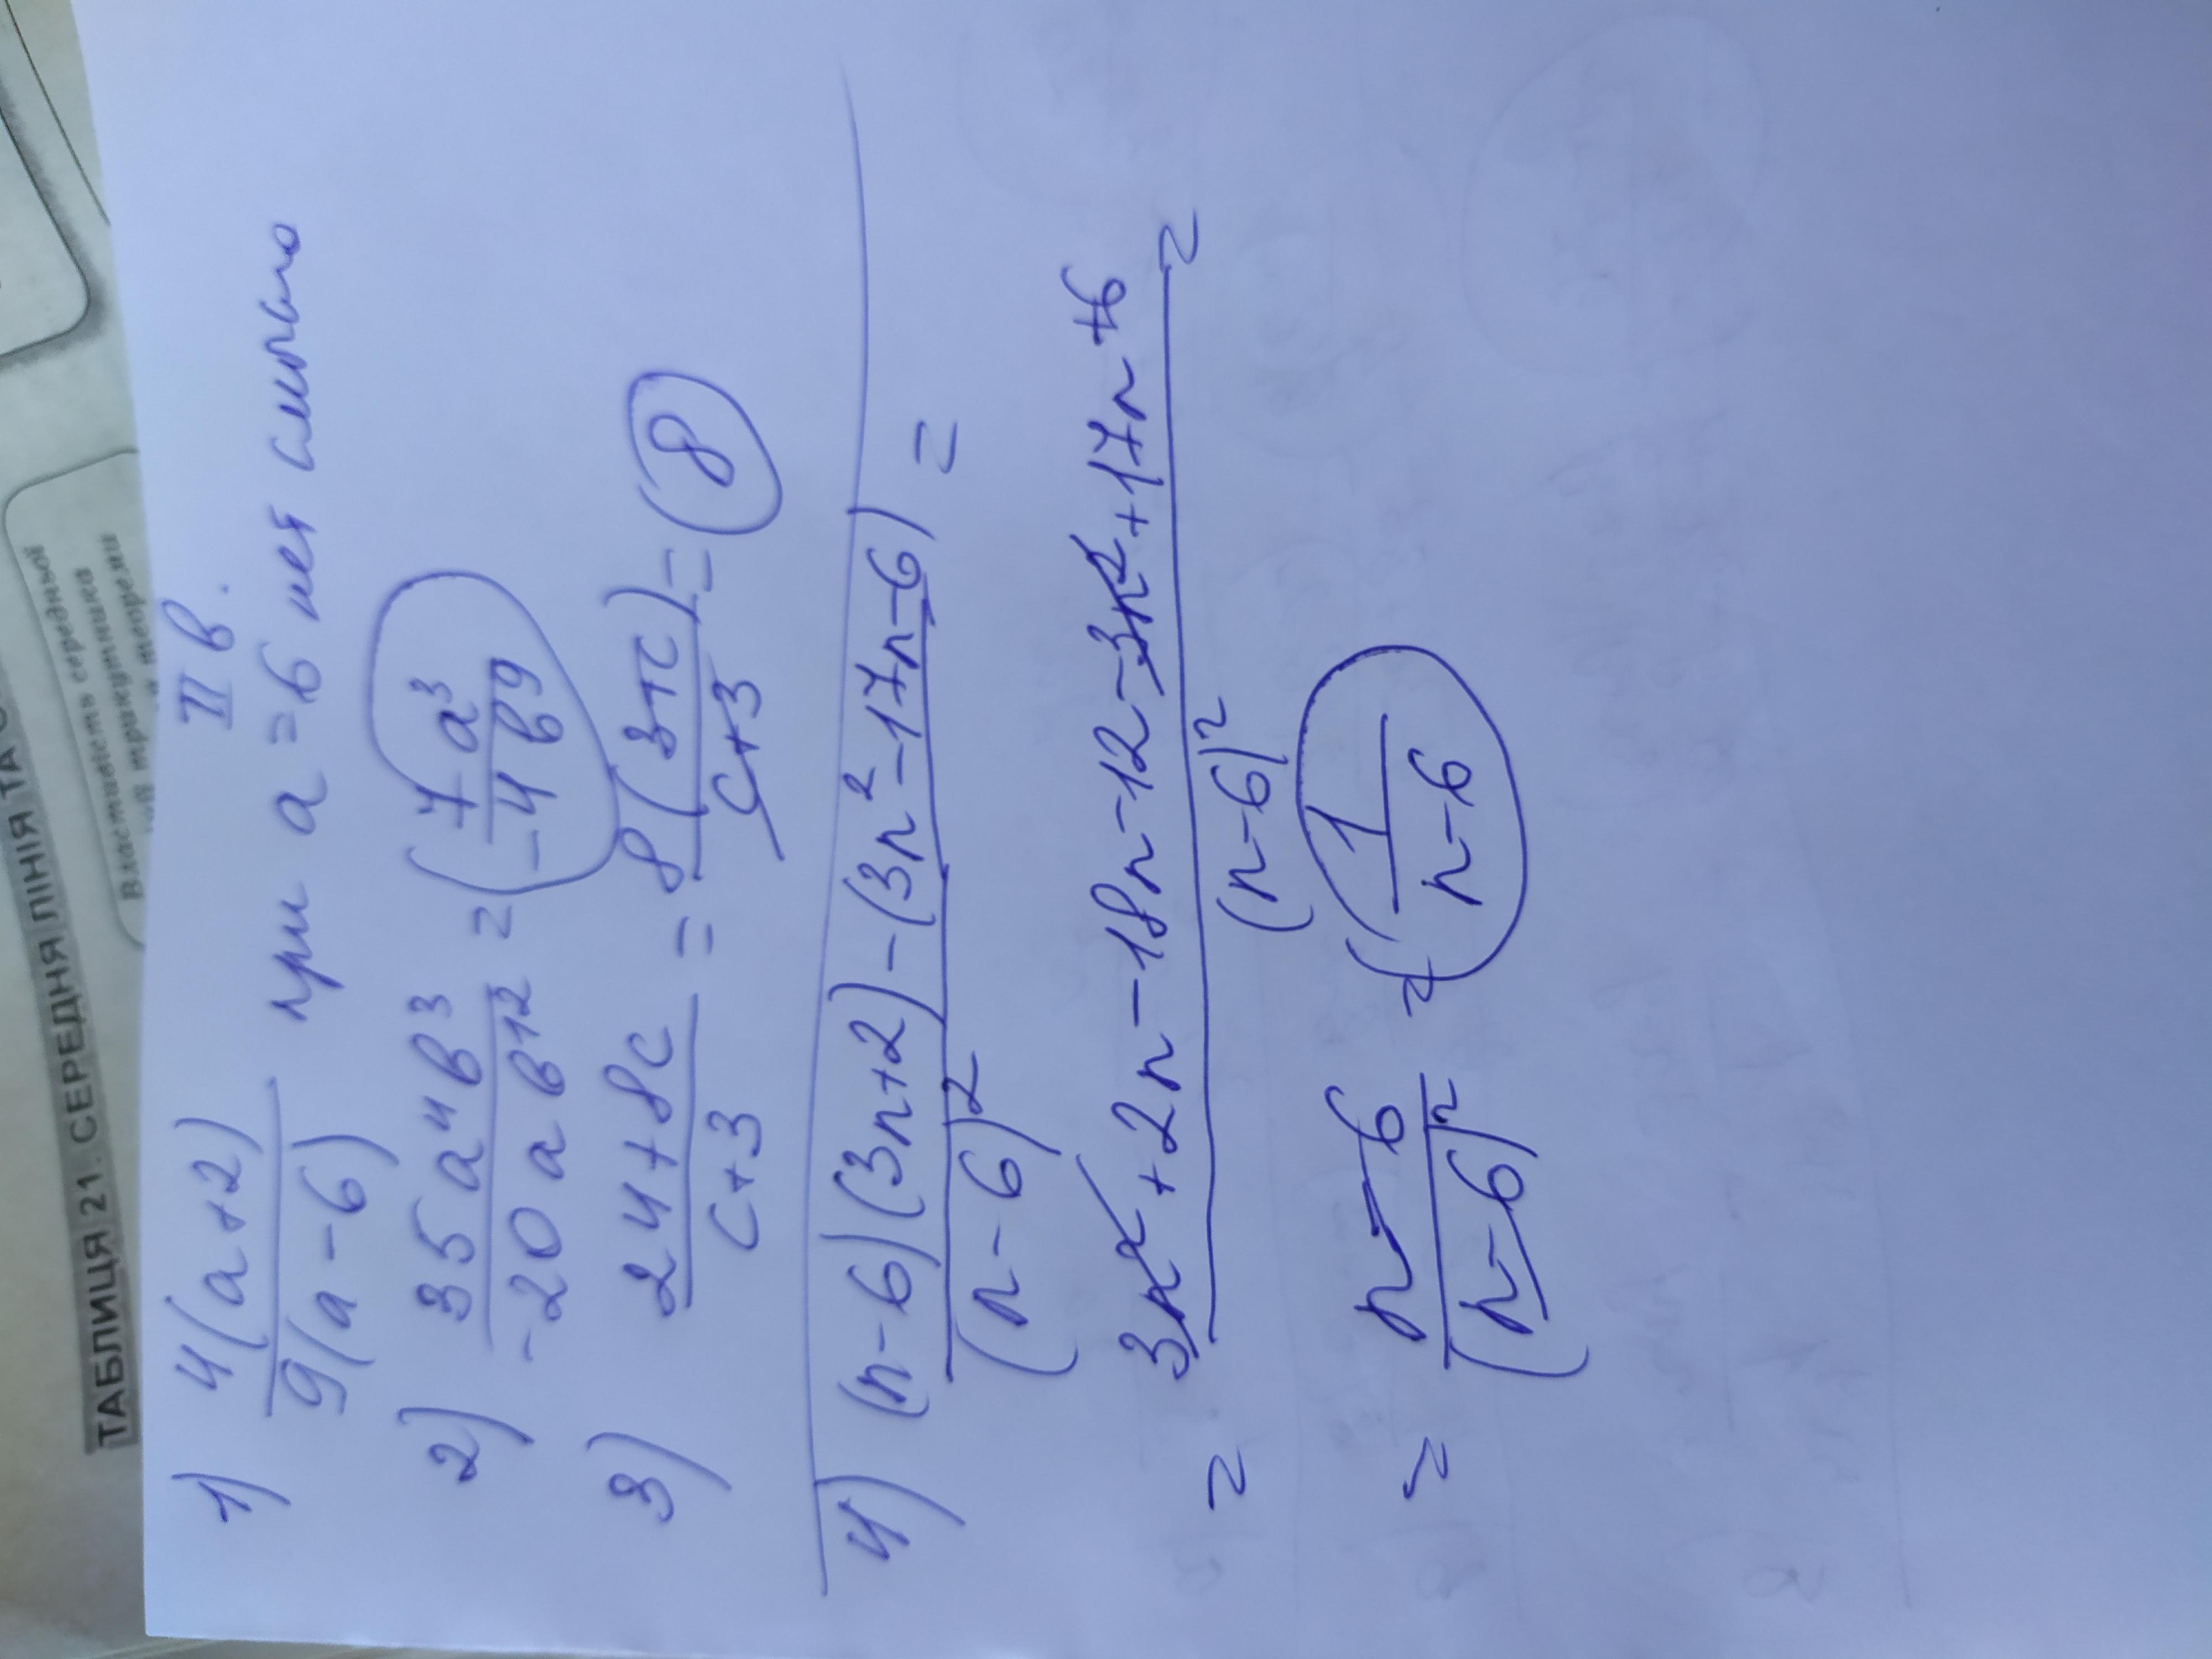 ТАБЛИЦЯ 21. СЕРЕДНЯ ЛІНІЯ ТА
Властивість середньої
трикутника
II в.
1) 4(a+2) / 9(a-6) при a = 6 нет смысла
2) 35a⁴b³ / -20ab¹² = (7a³ / -4b⁹
3) 24+8c / c+3 = 8(3+c) / c+3 = (8
4) (n-6)(3n+2)-(3n²-17n-6) / (n-6)² =
= 3n²+2n-18n-12-3n²+17n+6 / (n-6)² =
= n-6 / (n-6)² = (1 / n-6